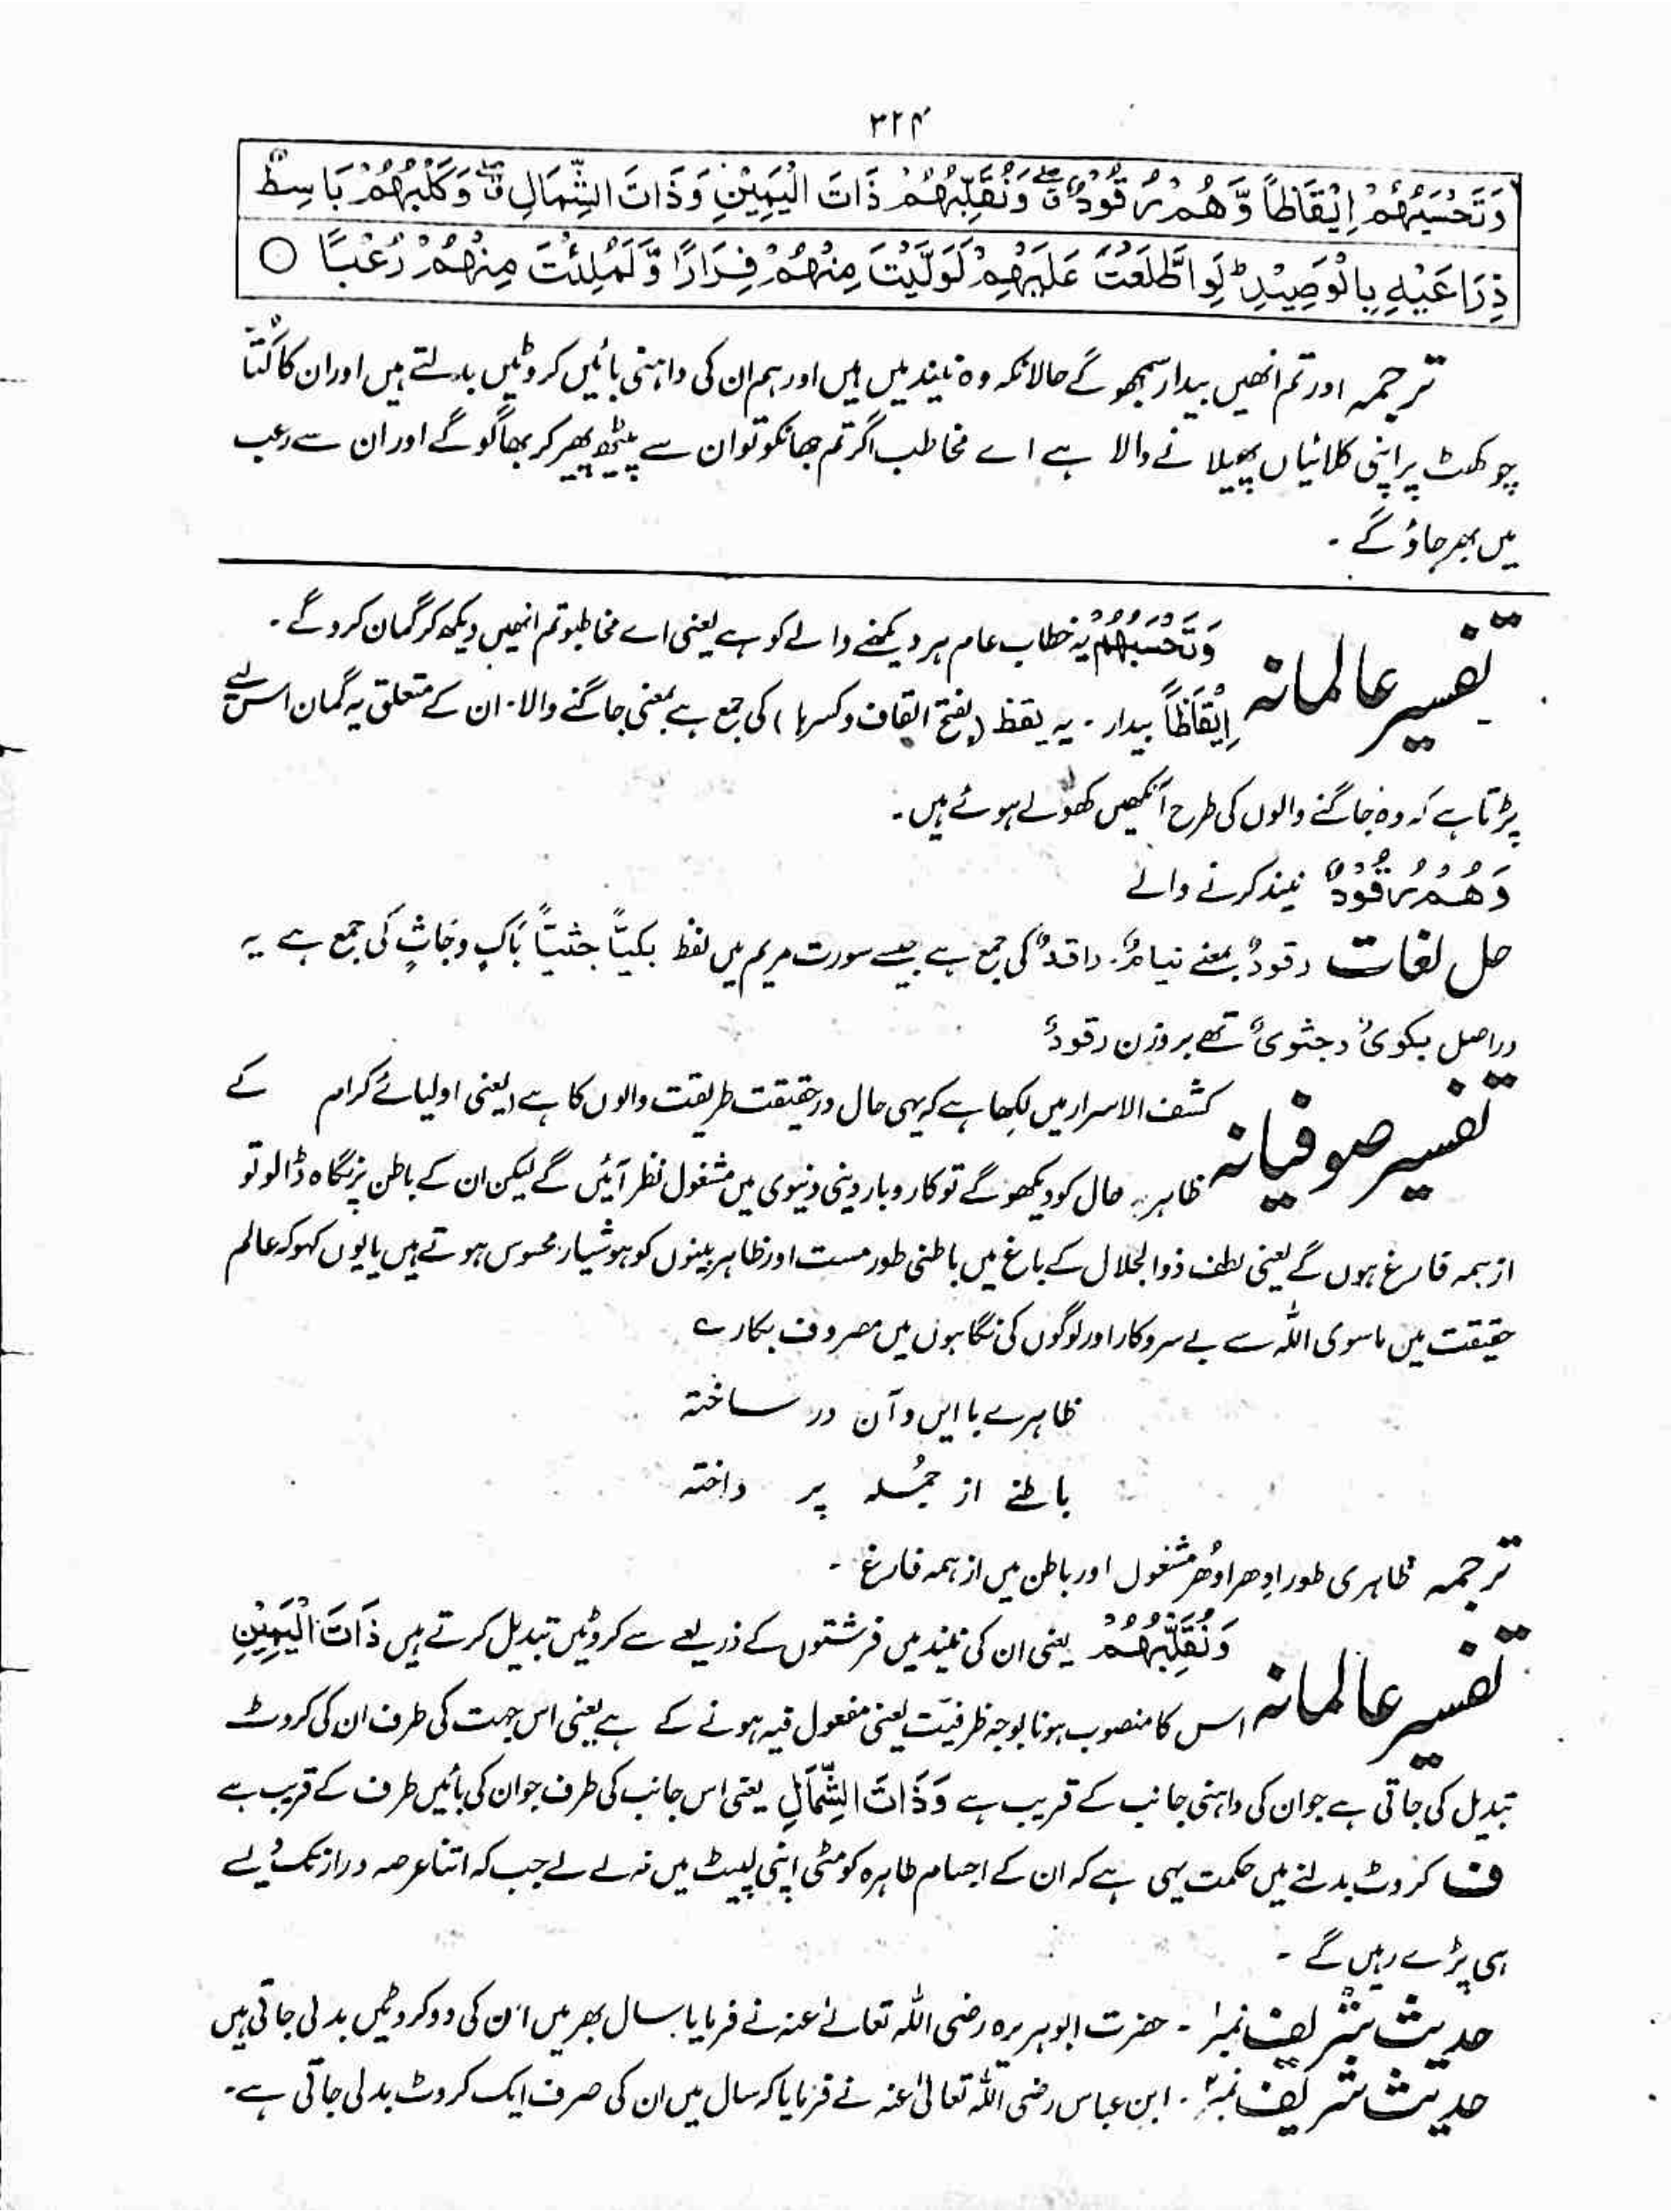 ۳۲۴
وَتَحْسَبُهُمْ اِيْقَاظًا وَّهُمْ رُقُوْدٌ ۖ ق وَنُقَلِّبُهُمْ ذَاتَ الْيَمِيْنِ وَذَاتَ الشِّمَالِ ۖ ق وَكَلْبُهُمْ بَاسِطٌ
ذِرَاعَيْهِ بِالْوَصِيْدِ ؕ لَوِ اطَّلَعْتَ عَلَيْهِمْ لَوَلَّيْتَ مِنْهُمْ فِرَارًا وَّلَمُلِئْتَ مِنْهُمْ رُعْبًا ○
ترجمہ اور تم انھیں بیدار سمجھو گے حالانکہ وہ نیند میں ہیں اور ہم ان کی داہنی بائیں کروٹیں بدلتے ہیں اور ان کا کُتّا
چوکھٹ پر اپنی کلائیاں پھیلا نے والا ہے اے مخاطب اگر تم جھانکو تو ان سے پیٹھ پھیر کر بھاگو گے اور ان سے رعب
میں بھر جاؤ گے ۔
تفسیر عالمانہ وَتَحْسَبُهُمْ یہ خطاب عام ہر دیکھنے والے کو ہے یعنی اے مخاطبو تم انھیں دیکھ کر گمان کرو گے ۔
اِيْقَاظًا بیدار ۔ یہ یقظ (بفتح القاف وکسرہا) کی جمع ہے بمعنی جاگنے والا ۔ ان کے متعلق یہ گمان اس لیے
پڑتا ہے کہ وہ جاگنے والوں کی طرح آنکھیں کھولے ہوئے ہیں ۔
وَهُمْ رُقُوْدٌ نیند کرنے والے
حل لغات رقودٌ بمعنے نیامٌ، راقدٌ کی جمع ہے جیسے سورت مریم میں لفظ بکیّاً جثیّاً باکٍ و جاثٍ کی جمع ہے یہ
دراصل بکویٌ و جثویٌ تھے بروزن رقودٌ
تفسیر صوفیانہ کشف الاسرار میں لکھا ہے کہ یہی حال درحقیقت طریقت والوں کا ہے یعنی اولیائے کرام کے
ظاہر حال کو دیکھو گے تو کاروبار دینی دنیوی میں مشغول نظر آئیں گے لیکن ان کے باطن پر نگاہ ڈالو تو
از ہمہ فارغ ہوں گے یعنی لطف ذوالجلال کے باغ میں باطنی طور مست اور ظاہر بینوں کو ہوشیار محسوس ہوتے ہیں یا یوں کہو کہ عالم
حقیقت میں ماسوی اللہ سے بے سروکار اور لوگوں کی نگاہوں میں مصروف بکارے
ظاہرے با این و آن در ساختہ
باطنے از جُملہ پر داختہ
ترجمہ ظاہری طور اِدھر اُدھر مشغول اور باطن میں از ہمہ فارغ ۔
تفسیر عالمانہ وَنُقَلِّبُهُمْ یعنی ان کی نیند میں فرشتوں کے ذریعے سے کروٹیں تبدیل کرتے ہیں ذَاتَ الْيَمِيْنِ
اس کا منصوب ہونا بوجہ ظرفیت یعنی مفعول فیہ ہونے کے ہے یعنی اس جہت کی طرف ان کی کروٹ
تبدیل کی جاتی ہے جو ان کی داہنی جانب کے قریب ہے وَذَاتَ الشِّمَالِ یعنی اس جانب کی طرف جو ان کی بائیں طرف کے قریب ہے
ف کروٹ بدلنے میں حکمت یہی ہے کہ ان کے اجسام طاہرہ کو مٹی اپنی لپیٹ میں نہ لے لے جب کہ اتنا عرصہ دراز تک لیے
ہی پڑے رہیں گے ۔
حدیث شریف نمبر۱ ۔ حضرت ابوہریرہ رضی اللہ تعالےٰ عنہ نے فرمایا سال بھر میں ان کی دو کروٹیں بدلی جاتی ہیں
حدیث شریف نمبر۲ ۔ ابن عباس رضی اللہ تعالیٰ عنہ نے فرمایا کہ سال میں ان کی صرف ایک کروٹ بدلی جاتی ہے ۔